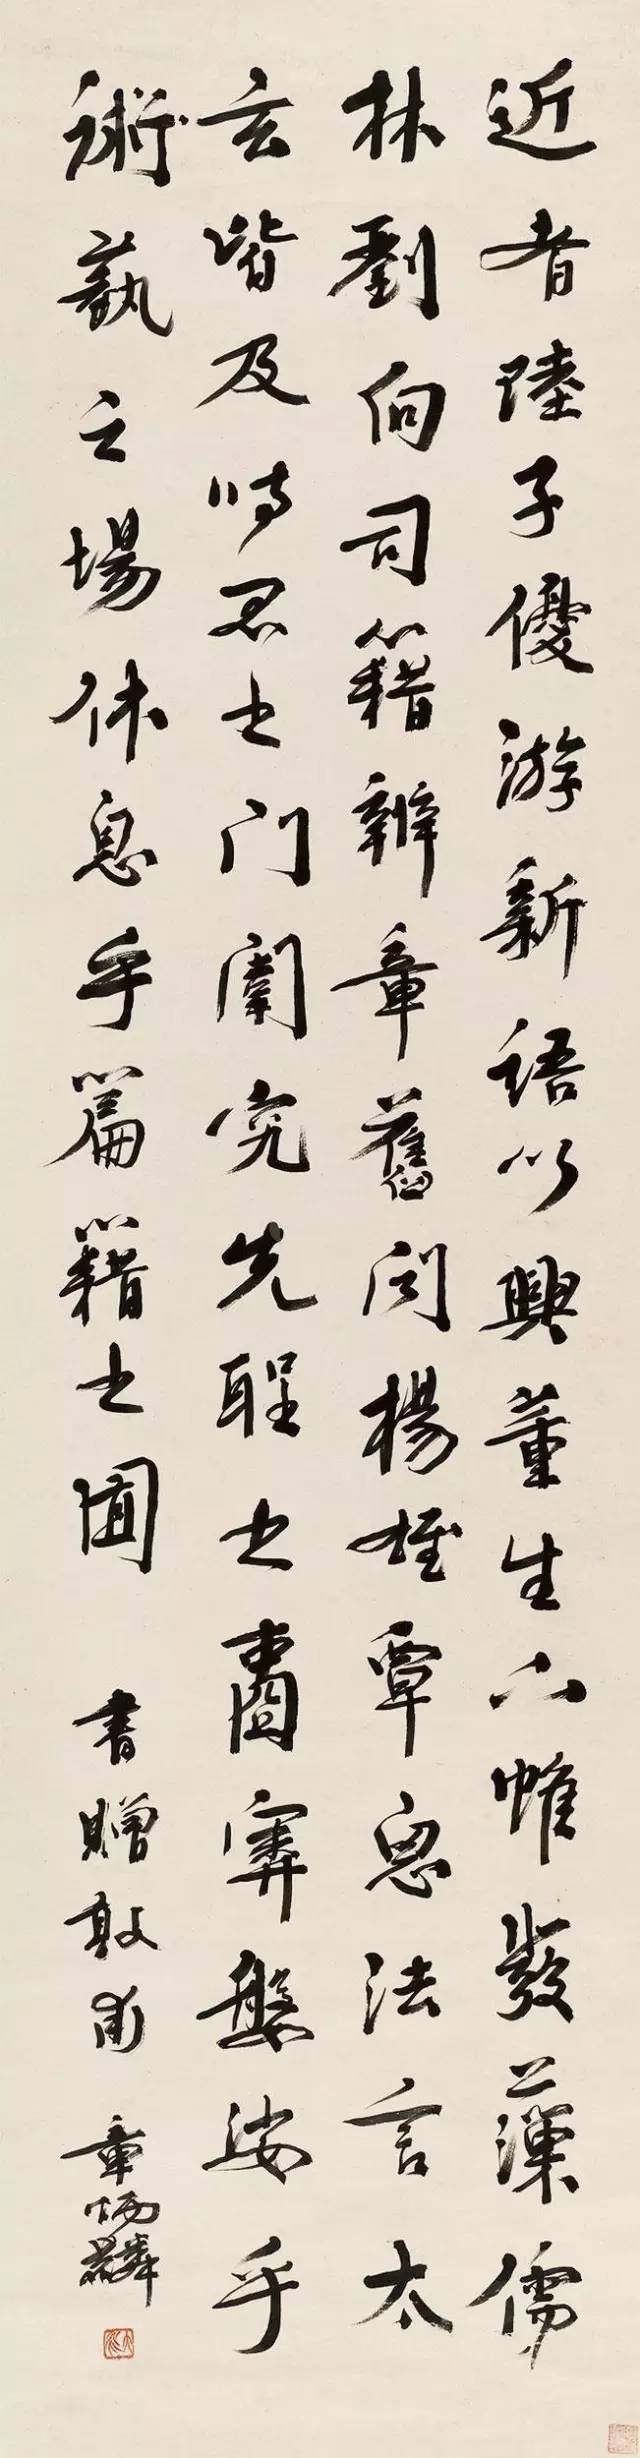 近者陸子優游新語以興董生下帷發藻儒
林劉向司籍辨章舊聞楊雄覃思法言太
玄皆及時君之門闈究先聖之壼奧媻娑乎
術蓺之場休息乎篇籍之囿 書贈敦甫 章炳麟